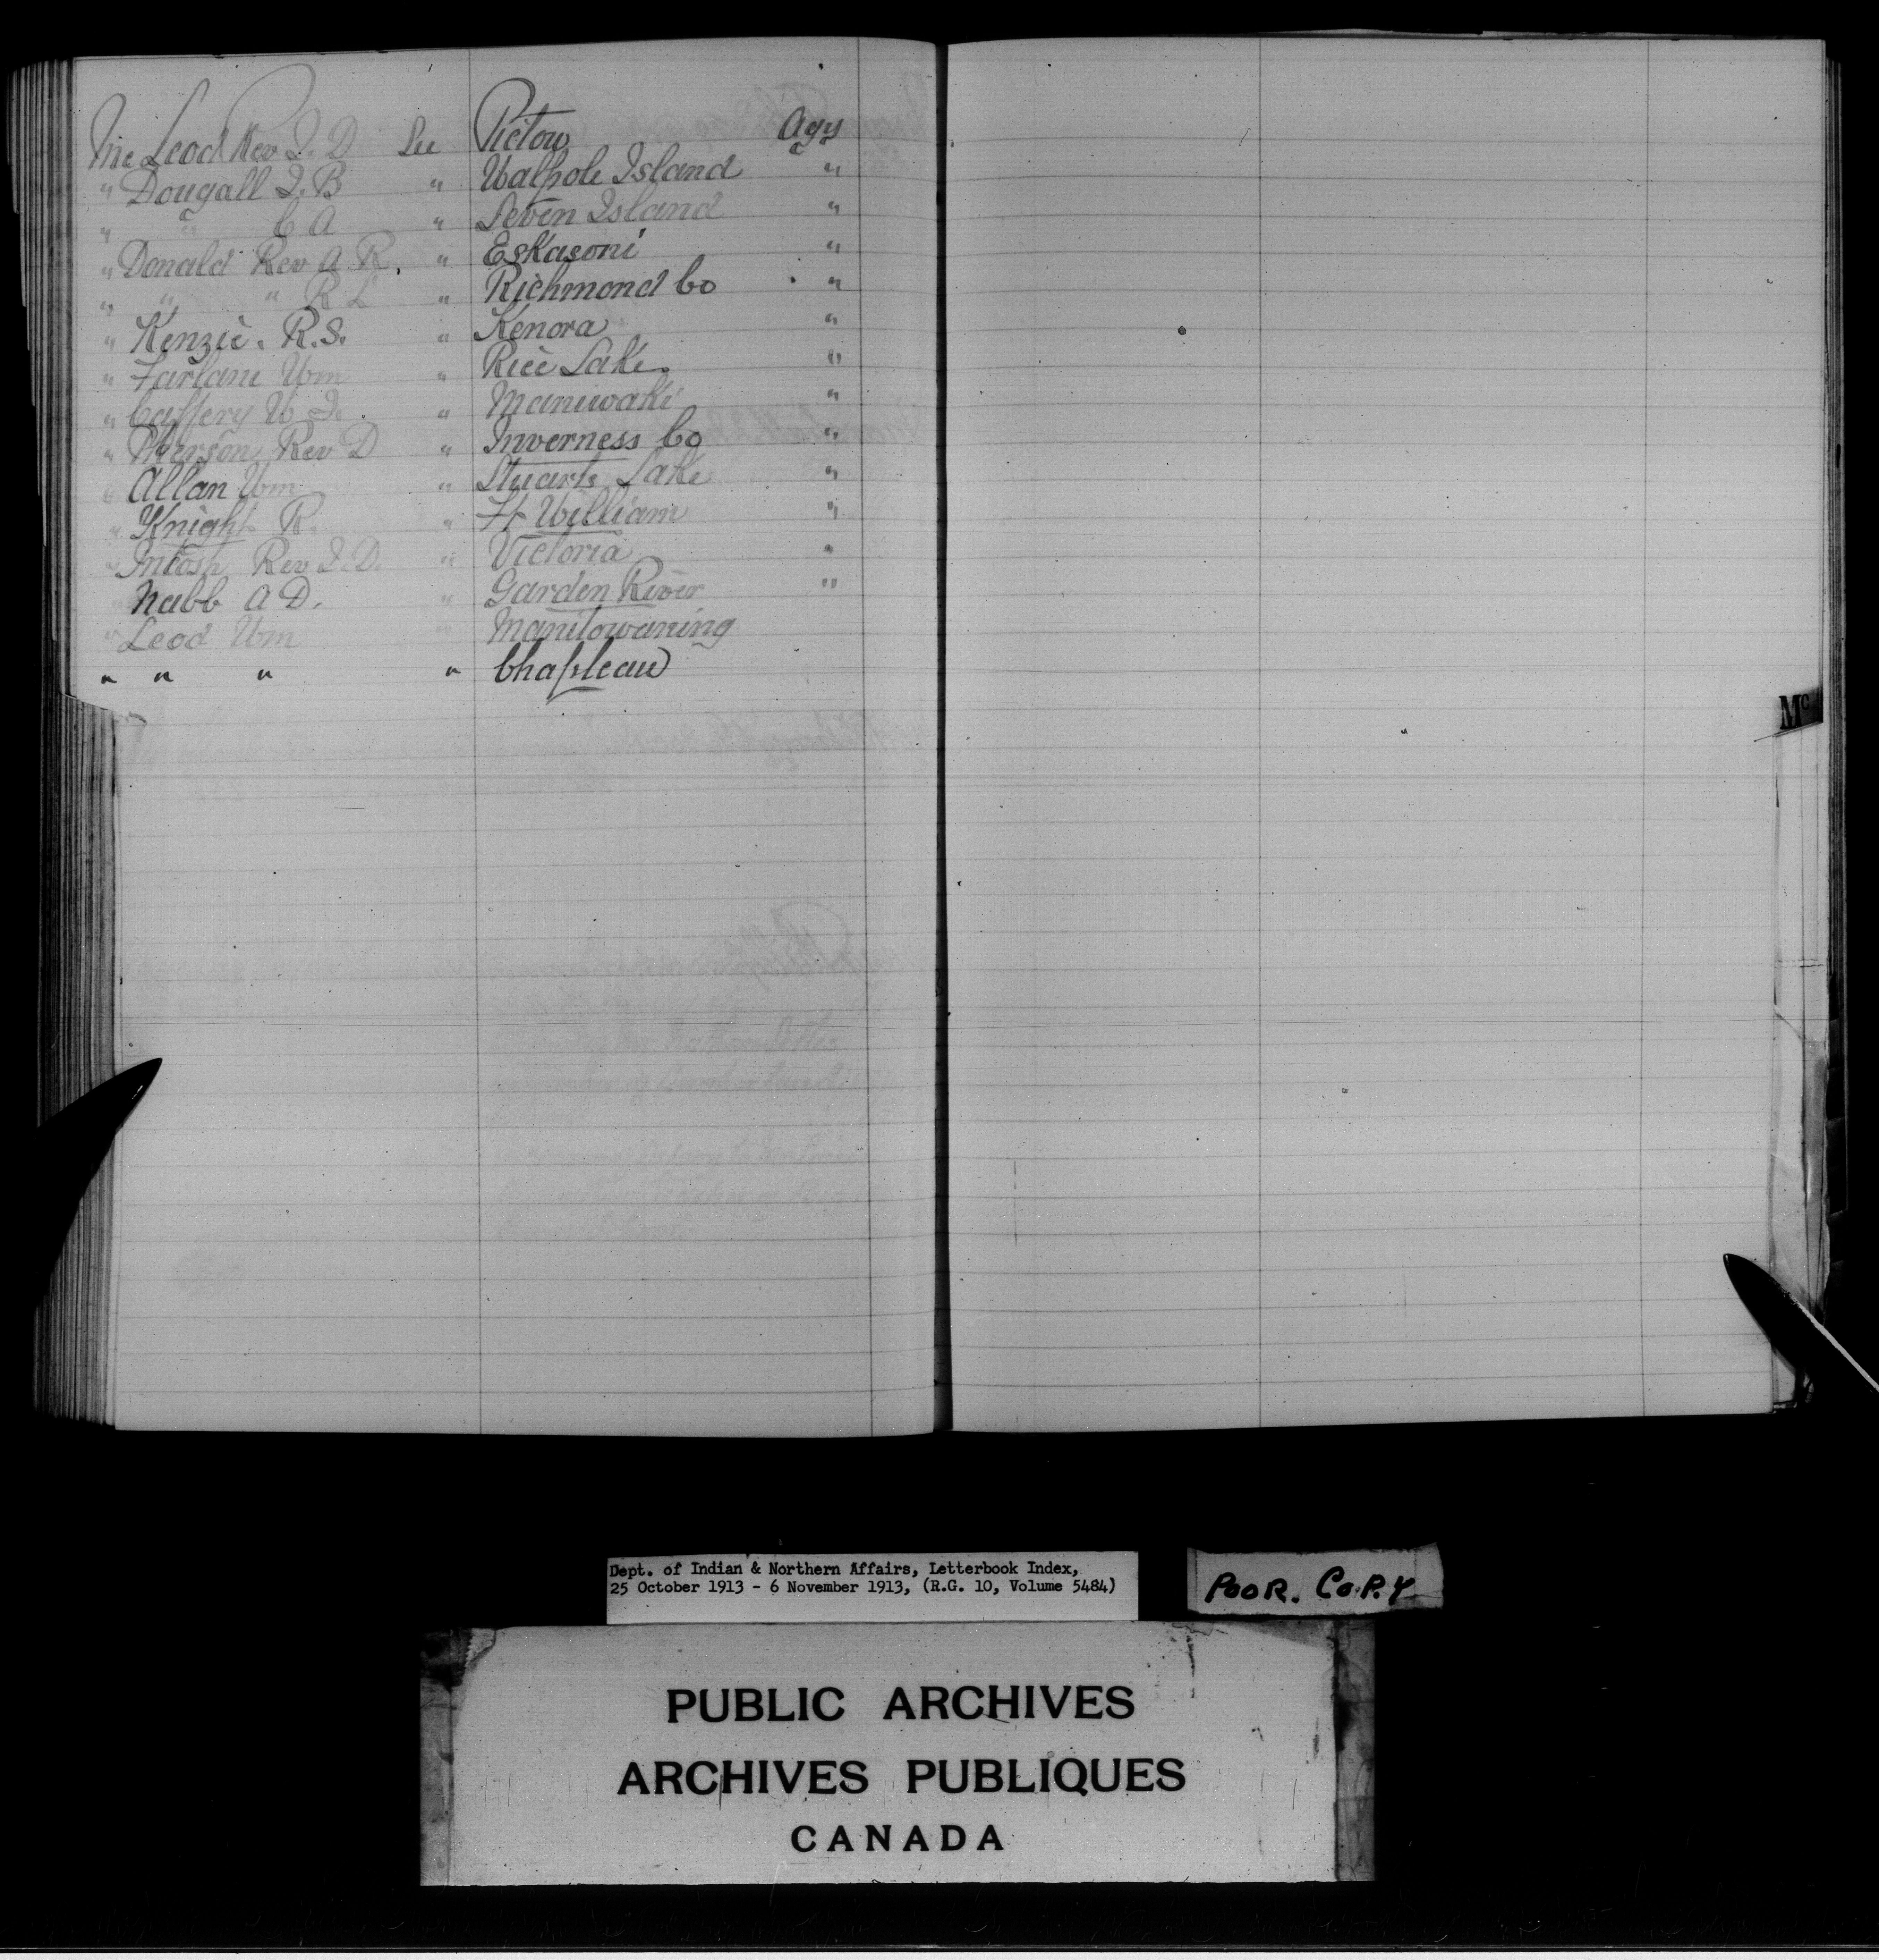 McLeod Rev J. D See Pictou Agy
" Dougall J. B " Walpole Island "
" " C A " Seven Island "
" Donald Rev A. R. " Eskasoni "
" " " R L " Richmond Co "
" Kenzie. R. S. " Kenora "
" Farlane Wm " Rice Lake. "
" Caffery W J. " Maniwaki "
" Pherson Rev D " Inverness Co "
" Allan Wm " Stuarts Lake "
" Knight R. " Ft William "
" Intosh Rev J. D. " Victoria "
" Nabb A D. " Garden River "
" Leod Wm " Manitowaning
" " " " Chapleau
Mc
Dept. of Indian & Northern Affairs, Letterbook Index,
25 October 1913 - 6 November 1913, (R.G. 10, Volume 5484)
POOR. COPY
PUBLIC ARCHIVES
ARCHIVES PUBLIQUES
CANADA